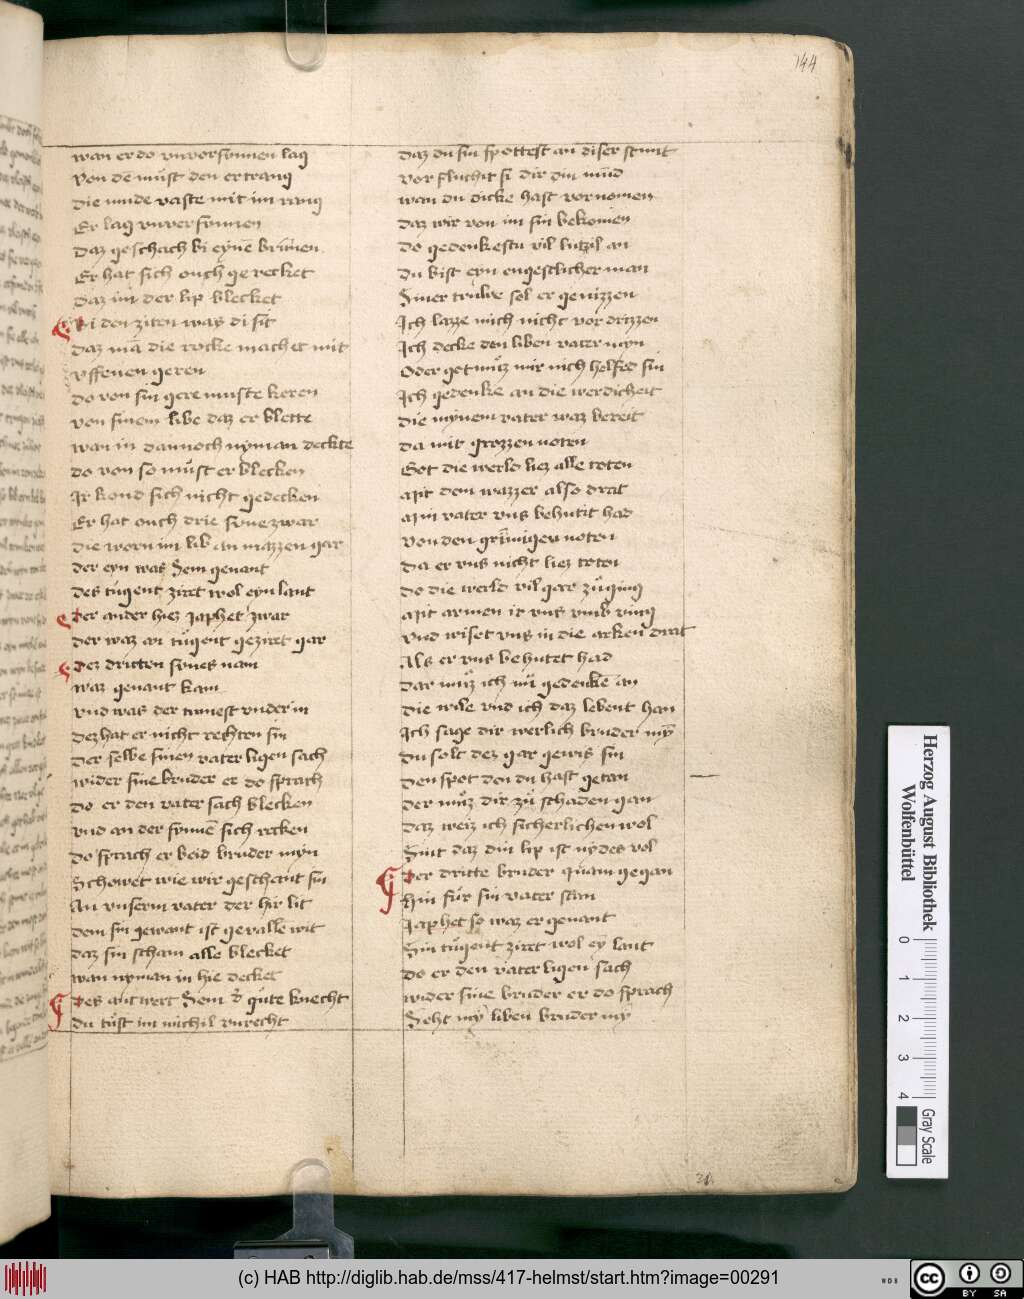 144
wan er do vnvorsunnen lag
Von dē must den er trang
die mude vaste mit im rang
Er lag vnversunnen
Daz geschach bi eynē brunnen
Er hat sich ouch ge recket
Daz im der lip blecket
Bi den ziten was di sit
Daz mā die rocke machet mit
vffenen geren
do von sin gere muste keren
von sinem libe daz er blette
wan in dannoch nyman deckte
do von so must er blecken
Ir kond sich nicht gedecken
Er hat ouch drie sune zwar
die worn im lib an mazzen gar
der eyn was Sem genant
des tugent ziret wol eyn lant
Der ander hiez Japhet zwar
der waz an tugent geziret gar
Dez dritten sunes nam
waz genant kam
vnd was der tunnest vnder in
Dez hat er nicht rechten sin
der selbe sinen vater ligen sach
wider sine bruder er do sprach
do er den vater sach blecken
vnd an der sunnē sich recken
do sprach er beid bruder myn
Schowet wie wir geschent sin
An vnserm vater der hir lit
dem sin gewant ist gevallē wit
daz sin scham alle blecket
wan nyman in hie decket
Des antwert Sem d' gute knecht
du tust im michil vnrecht
Daz du sin spottest an diser stunt
vor flucht si dir din mūd
wan du dicke hast vornomen
daz wir von im sin bekomen
do gedenkestu vil lutzil an
Du bist eyn engestlicher man
Siner truwe sol er genizzen
Ich lazze mich nicht vor drizzen
Ich decke den liben vater myn
Oder got muz mir nich helfed sin
Ich gedenke an die werdicheit
die mynem vater waz bereit
da mit grozzen noten
Got die werld liez alle toten
Mit dem wazzer also drat
Min vater vns behutit had
von den grimigen noten
da er vns nicht liez toten
do die werld vil gar zuging
Mit armen er vns vmb ving
vnd wiset vns in die arken drat
Als er vns behutet had
dar muz ich nū gedenkē an
die wile vnd ich daz lebent han
Ich sage dir werlich bruder mȳ
du solt dez gar gewis sin
Den spot den du hast getan
der muz dir zu schaden gan
daz weiz ich sicherlichen wol
Sint daz din lip ist nydes vol
Der dritte bruder quam gegan
Hin fur sin vater stan
Japhet so waz er genant
Sin tugent ziret wol eȳ lant
do er den vater ligen sach
wider sine bruder er do sprach
Seht mȳ liben bruder mȳ
Herzog August Bibliothek
Wolfenbüttel
0 1 2 3 4
Gray Scale
(c) HAB http://diglib.hab.de/mss/417-helmst/start.htm?image=00291
WDB
cc BY SA